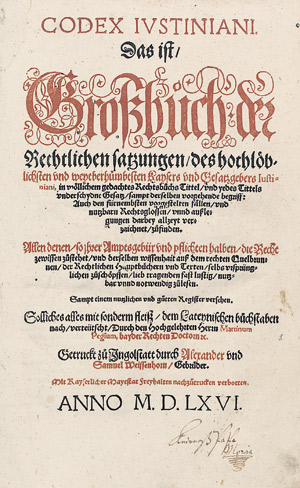 CODEX IVSTINIANI.
Das ist/
Großbůch der
Rechtlichen satzungen/ des hochlöb-
lichsten vnd weytberhümbtesten Kaysers vnd Gesatzgebers Iusti-
niani, in völlichem gedachtes Rechtsbůchs Tittel/ vnd yedes Tittels
vnderschydne Gesatz/ sampt derselben vorgehende begriff:
Auch den fürnembsten vorgestelten fällen/ vnd
nutzbarn Rechtsglossen/ vnnd außle-
gungen darbey allzeyt ver-
zaichnet/ zůfinden.
Allen denen/ so jhrer Ampts gebür vnd pflichten halben/ die Recht
zewissen zůstehet/ vnd derselben wissenhait auß dem rechten Quelbrun-
nen/ der Rechtlichen Hauptbüchern vnd Texten/ selbs vrsprüng-
lichen zůschöpffen/ lieb tragenden fast lustig/ nutz-
bar vnnd notwendig zůlesen.
Sampt einem nutzlichen vnd gůten Register versehen.
Solliches alles mit sonderm fleiß/ dem Lateynischen bůchstaben
nach/ verteütscht/ Durch den Hochgelehrten Herrn Martinum
Pegium, bayder Rechten Doctorn &c.
Getruckt zů Ingolstatt durch Alexander vnd
Samuel Weissenhorn/ Gebrüder.
Mit Kayserlicher Mayestat Freyhaiten nachzůtrucken verbotten.
ANNO M. D. LXVI.